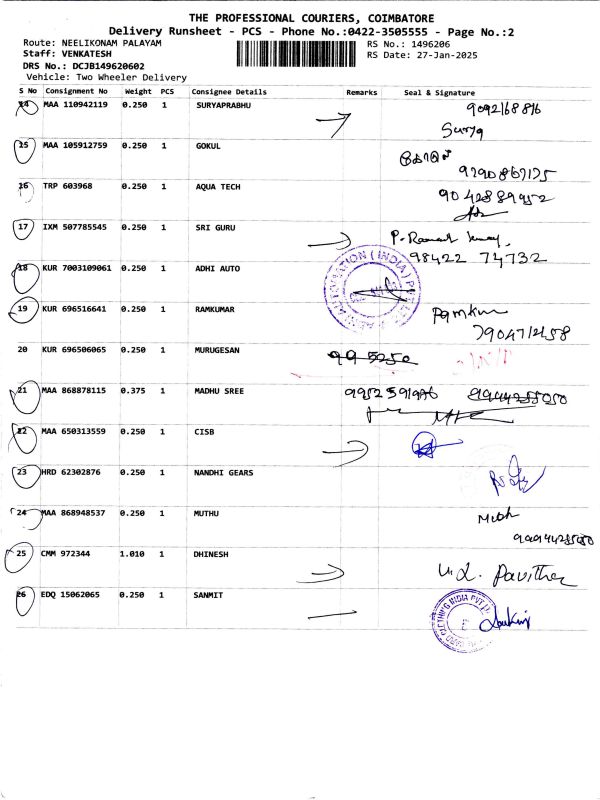 THE PROFESSIONAL COURIERS, COIMBATORE
Delivery Runsheet - PCS - Phone No.:0422-3505555 - Page No.:2
Route: NEELIKONAM PALAYAM RS No.: 1496206
Staff: VENKATESH RS Date: 27-Jan-2025
DRS No.: DCJB149620602
Vehicle: Two Wheeler Delivery
S No Consignment No Weight PCS Consignee Details Remarks Seal & Signature
14 MAA 110942119 0.250 1 SURYAPRABHU
Surya
15 MAA 105912759 0.250 1 GOKUL
கோகுல்
16 TRP 603968 0.250 1 AQUA TECH
9042889952
17 IXM 507785545 0.250 1 SRI GURU
98422 74732
18 KUR 7003109061 0.250 1 ADHI AUTO
19 KUR 696516641 0.250 1 RAMKUMAR
20 KUR 696506065 0.250 1 MURUGESAN
21 MAA 868878115 0.375 1 MADHU SREE
22 MAA 650313559 0.250 1 CISB
23 HRD 62302876 0.250 1 NANDHI GEARS
24 MAA 868948537 0.250 1 MUTHU
25 CMM 972344 1.010 1 DHINESH
26 EDQ 15062065 0.250 1 SANMIT